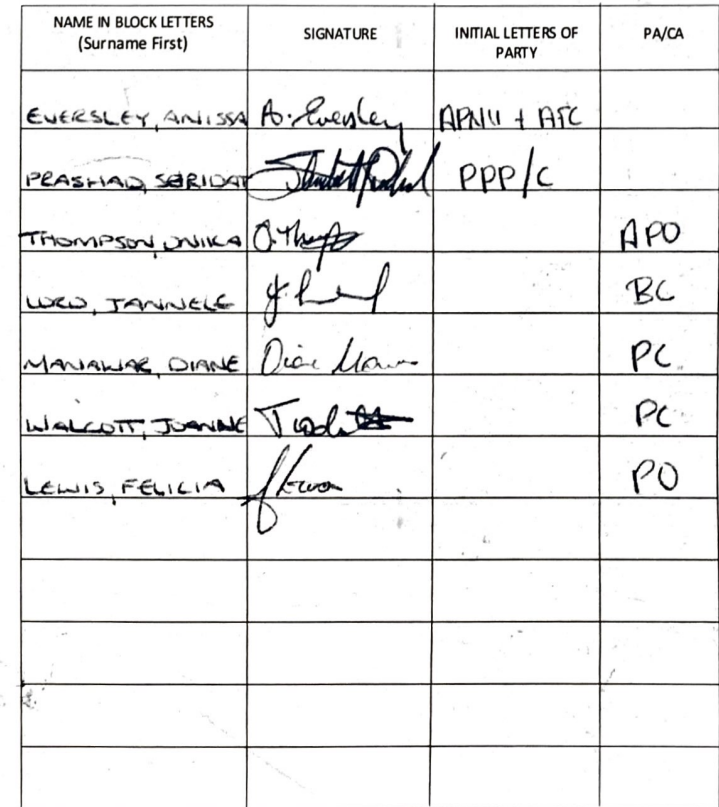 NAME IN BLOCK LETTERS (Surname First) SIGNATURE INITIAL LETTERS OF PARTY PA/CA
EVERSLEY, ANISSA A. Eversley APNU + AFC
PRASHAD, SERIDAT PPP/C
THOMPSON, ONIKA O. Thomp APO
LORD, JANNELE J. BC
MANAWAR, DIANE Diane PC
WALCOTT, JOANNE PC
LEWIS, FELICIA PO